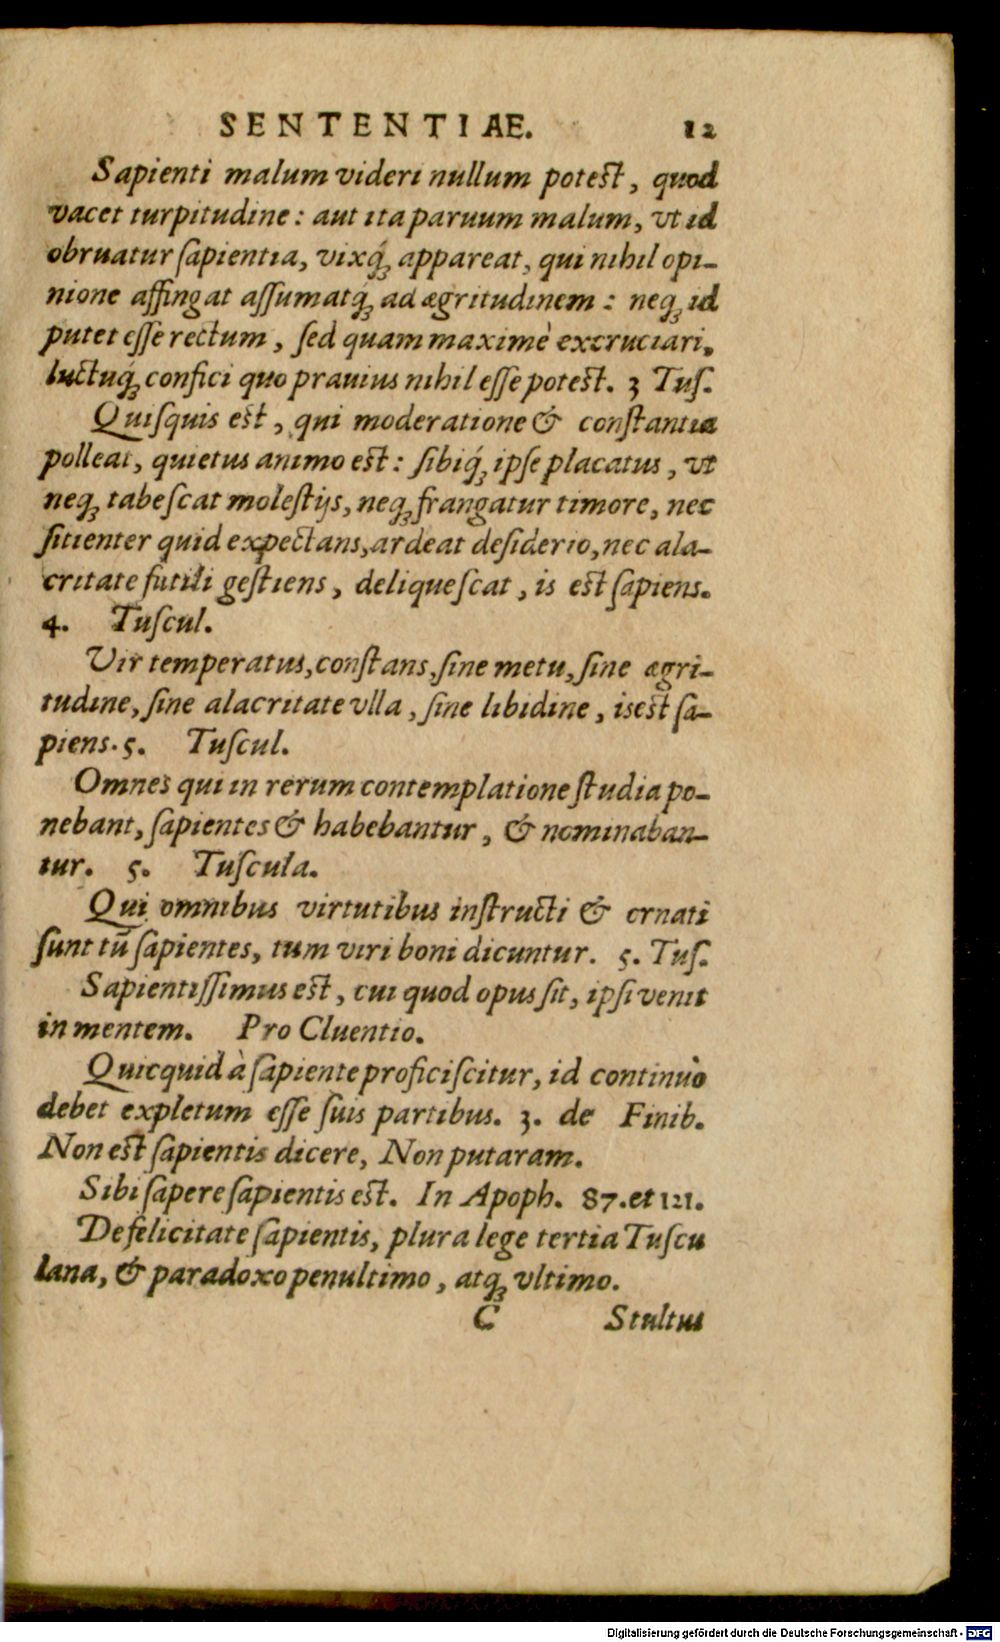 SENTENTIAE. 12
Sapienti malum videri nullum potest, quod
vacet turpitudine: aut ita paruum malum, vt id
obruatur ſapientia, vixq́; appareat, qui nihil opi-
nione affingat aſſumatq́; ad ægritudinem: neq; id
putet eſſe rectum, ſed quam maximè excruciari,
luctuq́; confici quo prauius nihil eſſe potest. 3 Tuſ.
Quiſquis est, qui moderatione & conſtantia
polleat, quietus animo est: ſibiq́; ipſe placatus, vt
neq; tabeſcat moleſtijs, neq; frangatur timore, nec
ſitienter quid expectans, ardeat deſiderio, nec ala-
critate futili geſtiens, deliqueſcat, is est ſapiens.
4. Tuſcul.
Vir temperatus, conſtans, ſine metu, ſine ægri-
tudine, ſine alacritate vlla, ſine libidine, is est ſa-
piens. 5. Tuſcul.
Omnes qui in rerum contemplatione ſtudia po-
nebant, ſapientes & habebantur, & nominaban-
tur. 5. Tuſcula.
Qui omnibus virtutibus inſtructi & ornati
ſunt tū ſapientes, tum viri boni dicuntur. 5. Tuſ.
Sapientiſſimus est, cui quod opus ſit, ipſi venit
in mentem. Pro Cluentio.
Quicquid à ſapiente proficiſcitur, id continuò
debet expletum eſſe ſuis partibus. 3. de Finib.
Non est ſapientis dicere, Non putaram.
Sibi ſapere ſapientis est. In Apoph. 87. et 121.
De felicitate ſapientis, plura lege tertia Tuſcu
lana, & paradoxo penultimo, atq; vltimo.
C Stultus
Digitalisierung gefördert durch die Deutsche Forschungsgemeinschaft - DFG